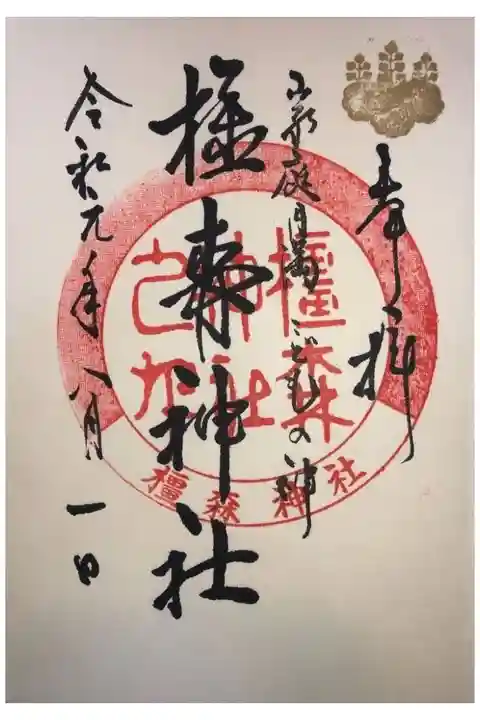 奉拝
家庭円満こどもの神
橿森神社
令和元年八月一日
橿森
神社
橿森神社